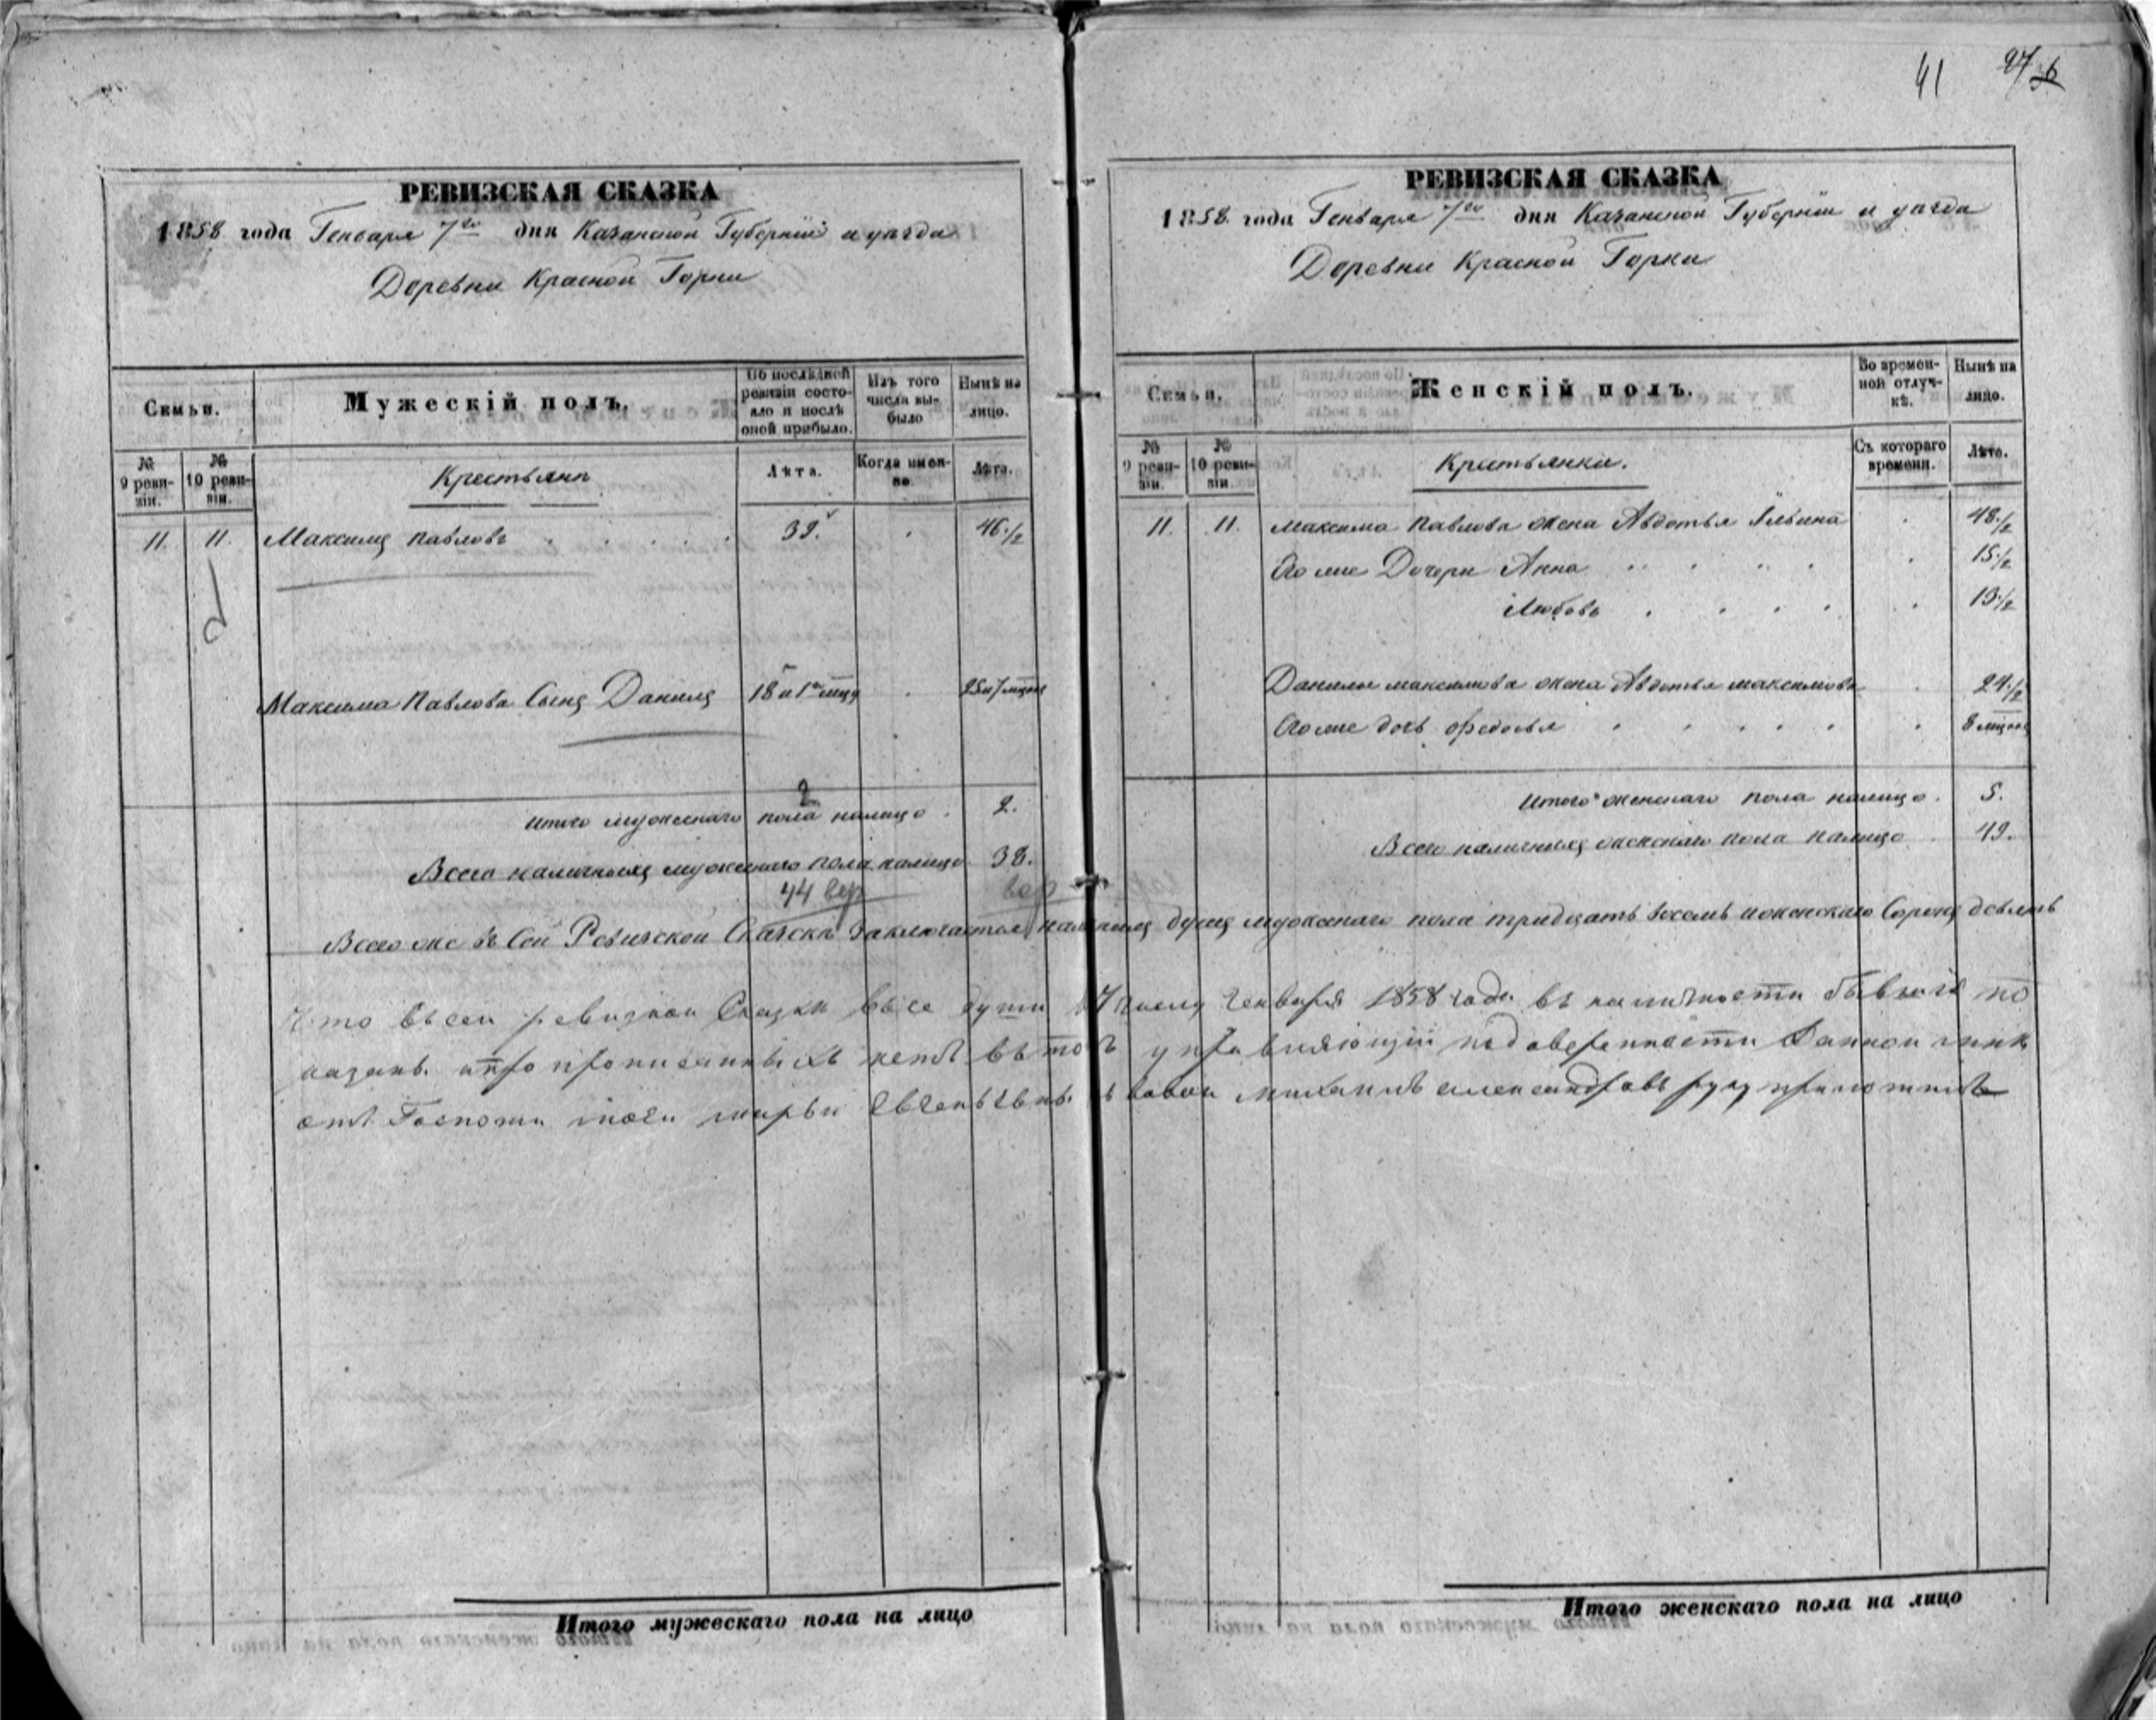 41 27
РЕВИЗСКАЯ СКАЗКА
1858 года Генваря 7го дня Казанской Губерніи и уѣзда
Деревни Красной Горки
Семьи.
Мужескій полъ.
По послѣдней ревизіи состояло и послѣ оной прибыло.
Изъ того числа выбыло
Нынѣ на лицо.
№ 9 ревизіи.
№ 10 ревизіи.
Крестьяне
Лѣта.
Когда именно.
Лѣта.
11. 11. Максимъ Павловъ 39. 46 1/2
Максима Павлова Сынъ Данилъ 18 и 1 мцъ 25 и 7 мцовъ
2
Итого мужескаго пола налицо. 2.
Всего наличныхъ мужескаго пола налицо 38.
44 вер
вер
РЕВИЗСКАЯ СКАЗКА
1858 года Генваря 7го дня Казанской Губерніи и уѣзда
Деревни Красной Горки
Семьи.
Женскій полъ.
Во временной отлучкѣ.
Нынѣ на лицо.
№ 9 ревизіи.
№ 10 ревизіи.
Крестьянки.
Съ котораго времени.
Лѣта.
11. 11. Максима Павлова жена Авдотья Ильина 48 1/2
Его же Дочери Анна 15 1/2
Любовь 13 1/2
Данилы Максимова жена Авдотья Максимова 24 1/2
Его же дочь Федосья 8 мцовъ
Итого женскаго пола налицо. 5.
Всего наличныхъ женскаго пола налицо 49.
Всего же въ Сей Ревизской Сказкѣ заключается наличныхъ душъ мужескаго пола тридцать восемь и женскаго Сорокъ девять
Что въ сей ревизкой Сказки все души 7 числу генваря 1858 года въ наличности бывшия по
казаны и про прописанныхъ нетъ въ томъ управляющий по доверенности Данной мнѣ
отъ Госпожи моей Марьи михаилъ александровъ руку приложилъ
Итого мужескаго пола на лицо
Итого женскаго пола на лицо